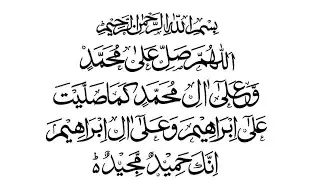 بسم الله الرحمن الرحيم
اللهم صل على محمد
وعلى ال محمد كما صليت
على ابراهيم وعلى ال ابراهيم
انك حميد مجيد